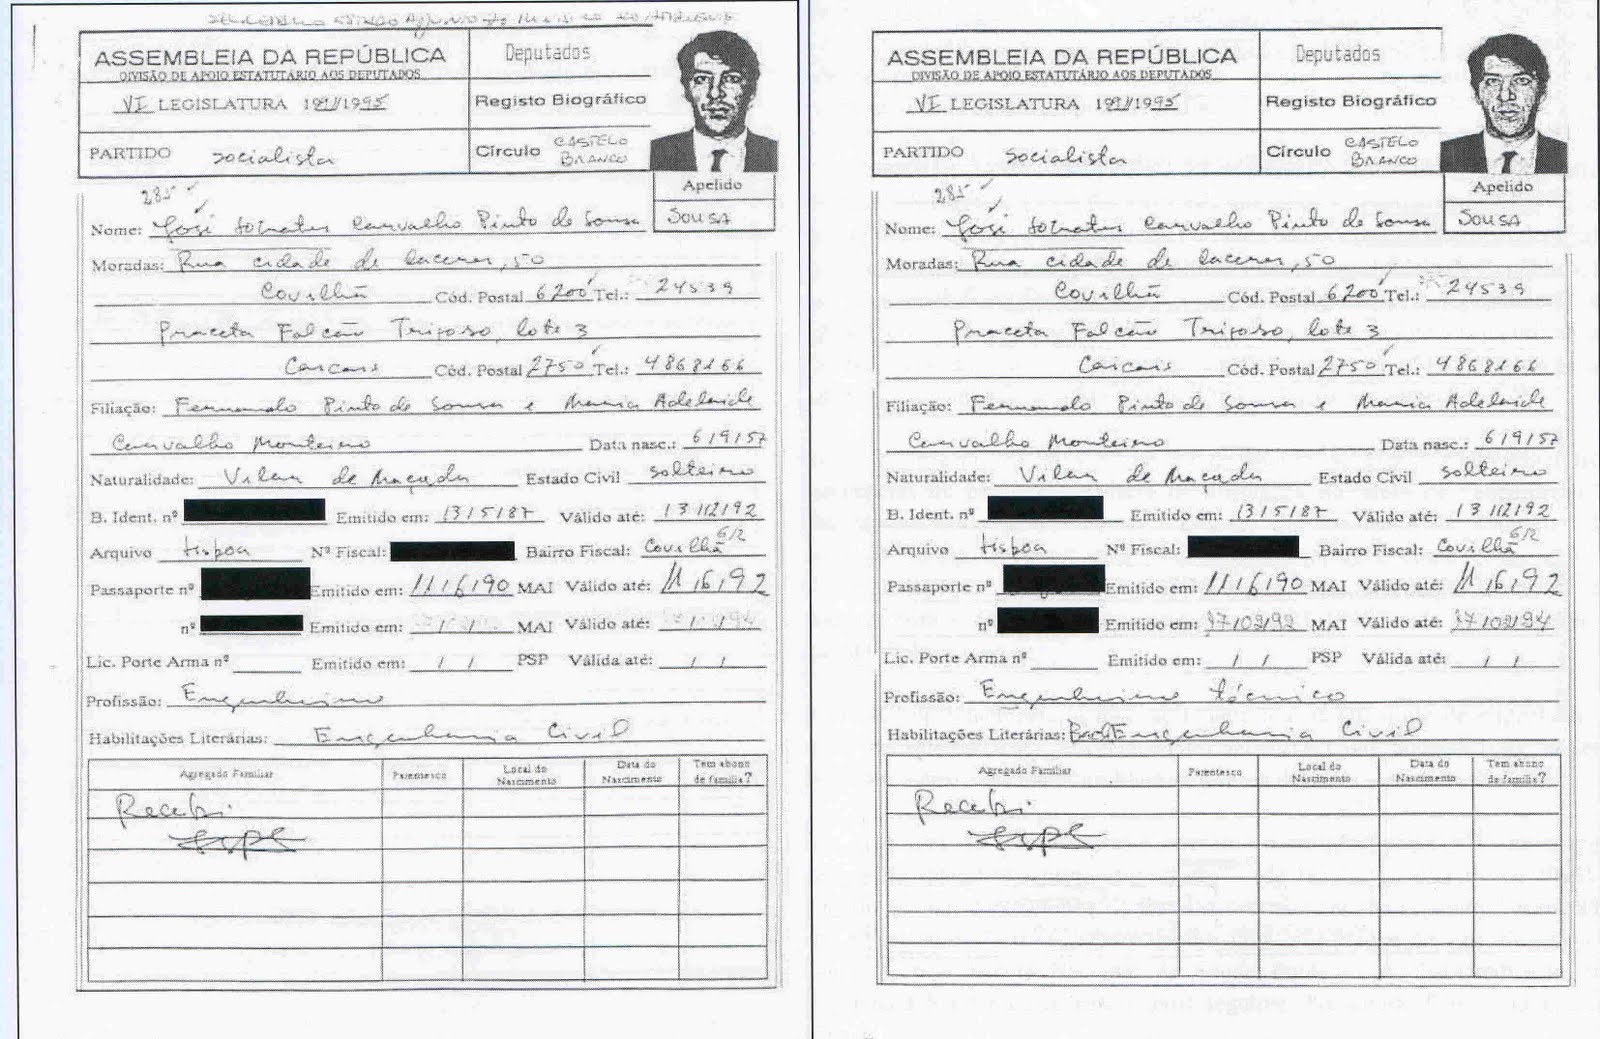 ASSEMBLEIA DA REPÚBLICA
DIVISÃO DE APOIO ESTATUTÁRIO AOS DEPUTADOS
Deputados
VI LEGISLATURA 1991/1995
Registo Biográfico
PARTIDO socialista
Círculo CASTELO BRANCO
Apelido
SOUSA
285
Nome: José Sócrates Carvalho Pinto de Sousa
Moradas: Rua cidade de Caceres, 50
Covilhã Cód. Postal 6200 Tel.: 24539
Praceta Falcão Trigoso, lote 3
Cascais Cód. Postal 2750 Tel.: 4868166
Filiação: Fernando Pinto de Sousa e Maria Adelaide
Carvalho Monteiro Data nasc.: 6/9/57
Naturalidade: Vilar de Maçada Estado Civil solteiro
B. Ident. nº Emitido em: 13/5/87 Válido até: 13/12/92
Arquivo Lisboa Nº Fiscal: Bairro Fiscal: Covilhã
Passaporte nº Emitido em: 11/6/90 MAI Válido até: 11/6/92
nº Emitido em: / / MAI Válido até: / /94
Lic. Porte Arma nº Emitido em: / / PSP Válida até: / /
Profissão: Engenheiro
Habilitações Literárias: Engenharia Civil
Agregado Familiar Parentesco Local do Nascimento Data do Nascimento Tem abono de família?
Recebi
ASSEMBLEIA DA REPÚBLICA
DIVISÃO DE APOIO ESTATUTÁRIO AOS DEPUTADOS
Deputados
VI LEGISLATURA 1991/1995
Registo Biográfico
PARTIDO socialista
Círculo CASTELO BRANCO
Apelido
SOUSA
285
Nome: José Sócrates Carvalho Pinto de Sousa
Moradas: Rua cidade de Caceres, 50
Covilhã Cód. Postal 6200 Tel.: 24539
Praceta Falcão Trigoso, lote 3
Cascais Cód. Postal 2750 Tel.: 4868166
Filiação: Fernando Pinto de Sousa e Maria Adelaide
Carvalho Monteiro Data nasc.: 6/9/57
Naturalidade: Vilar de Maçada Estado Civil solteiro
B. Ident. nº Emitido em: 13/5/87 Válido até: 13/12/92
Arquivo Lisboa Nº Fiscal: Bairro Fiscal: Covilhã
Passaporte nº Emitido em: 11/6/90 MAI Válido até: 11/6/92
nº Emitido em: /02/92 MAI Válido até: /02/94
Lic. Porte Arma nº Emitido em: / / PSP Válida até: / /
Profissão: Engenheiro técnico
Habilitações Literárias: Engenharia Civil
Agregado Familiar Parentesco Local do Nascimento Data do Nascimento Tem abono de família?
Recebi